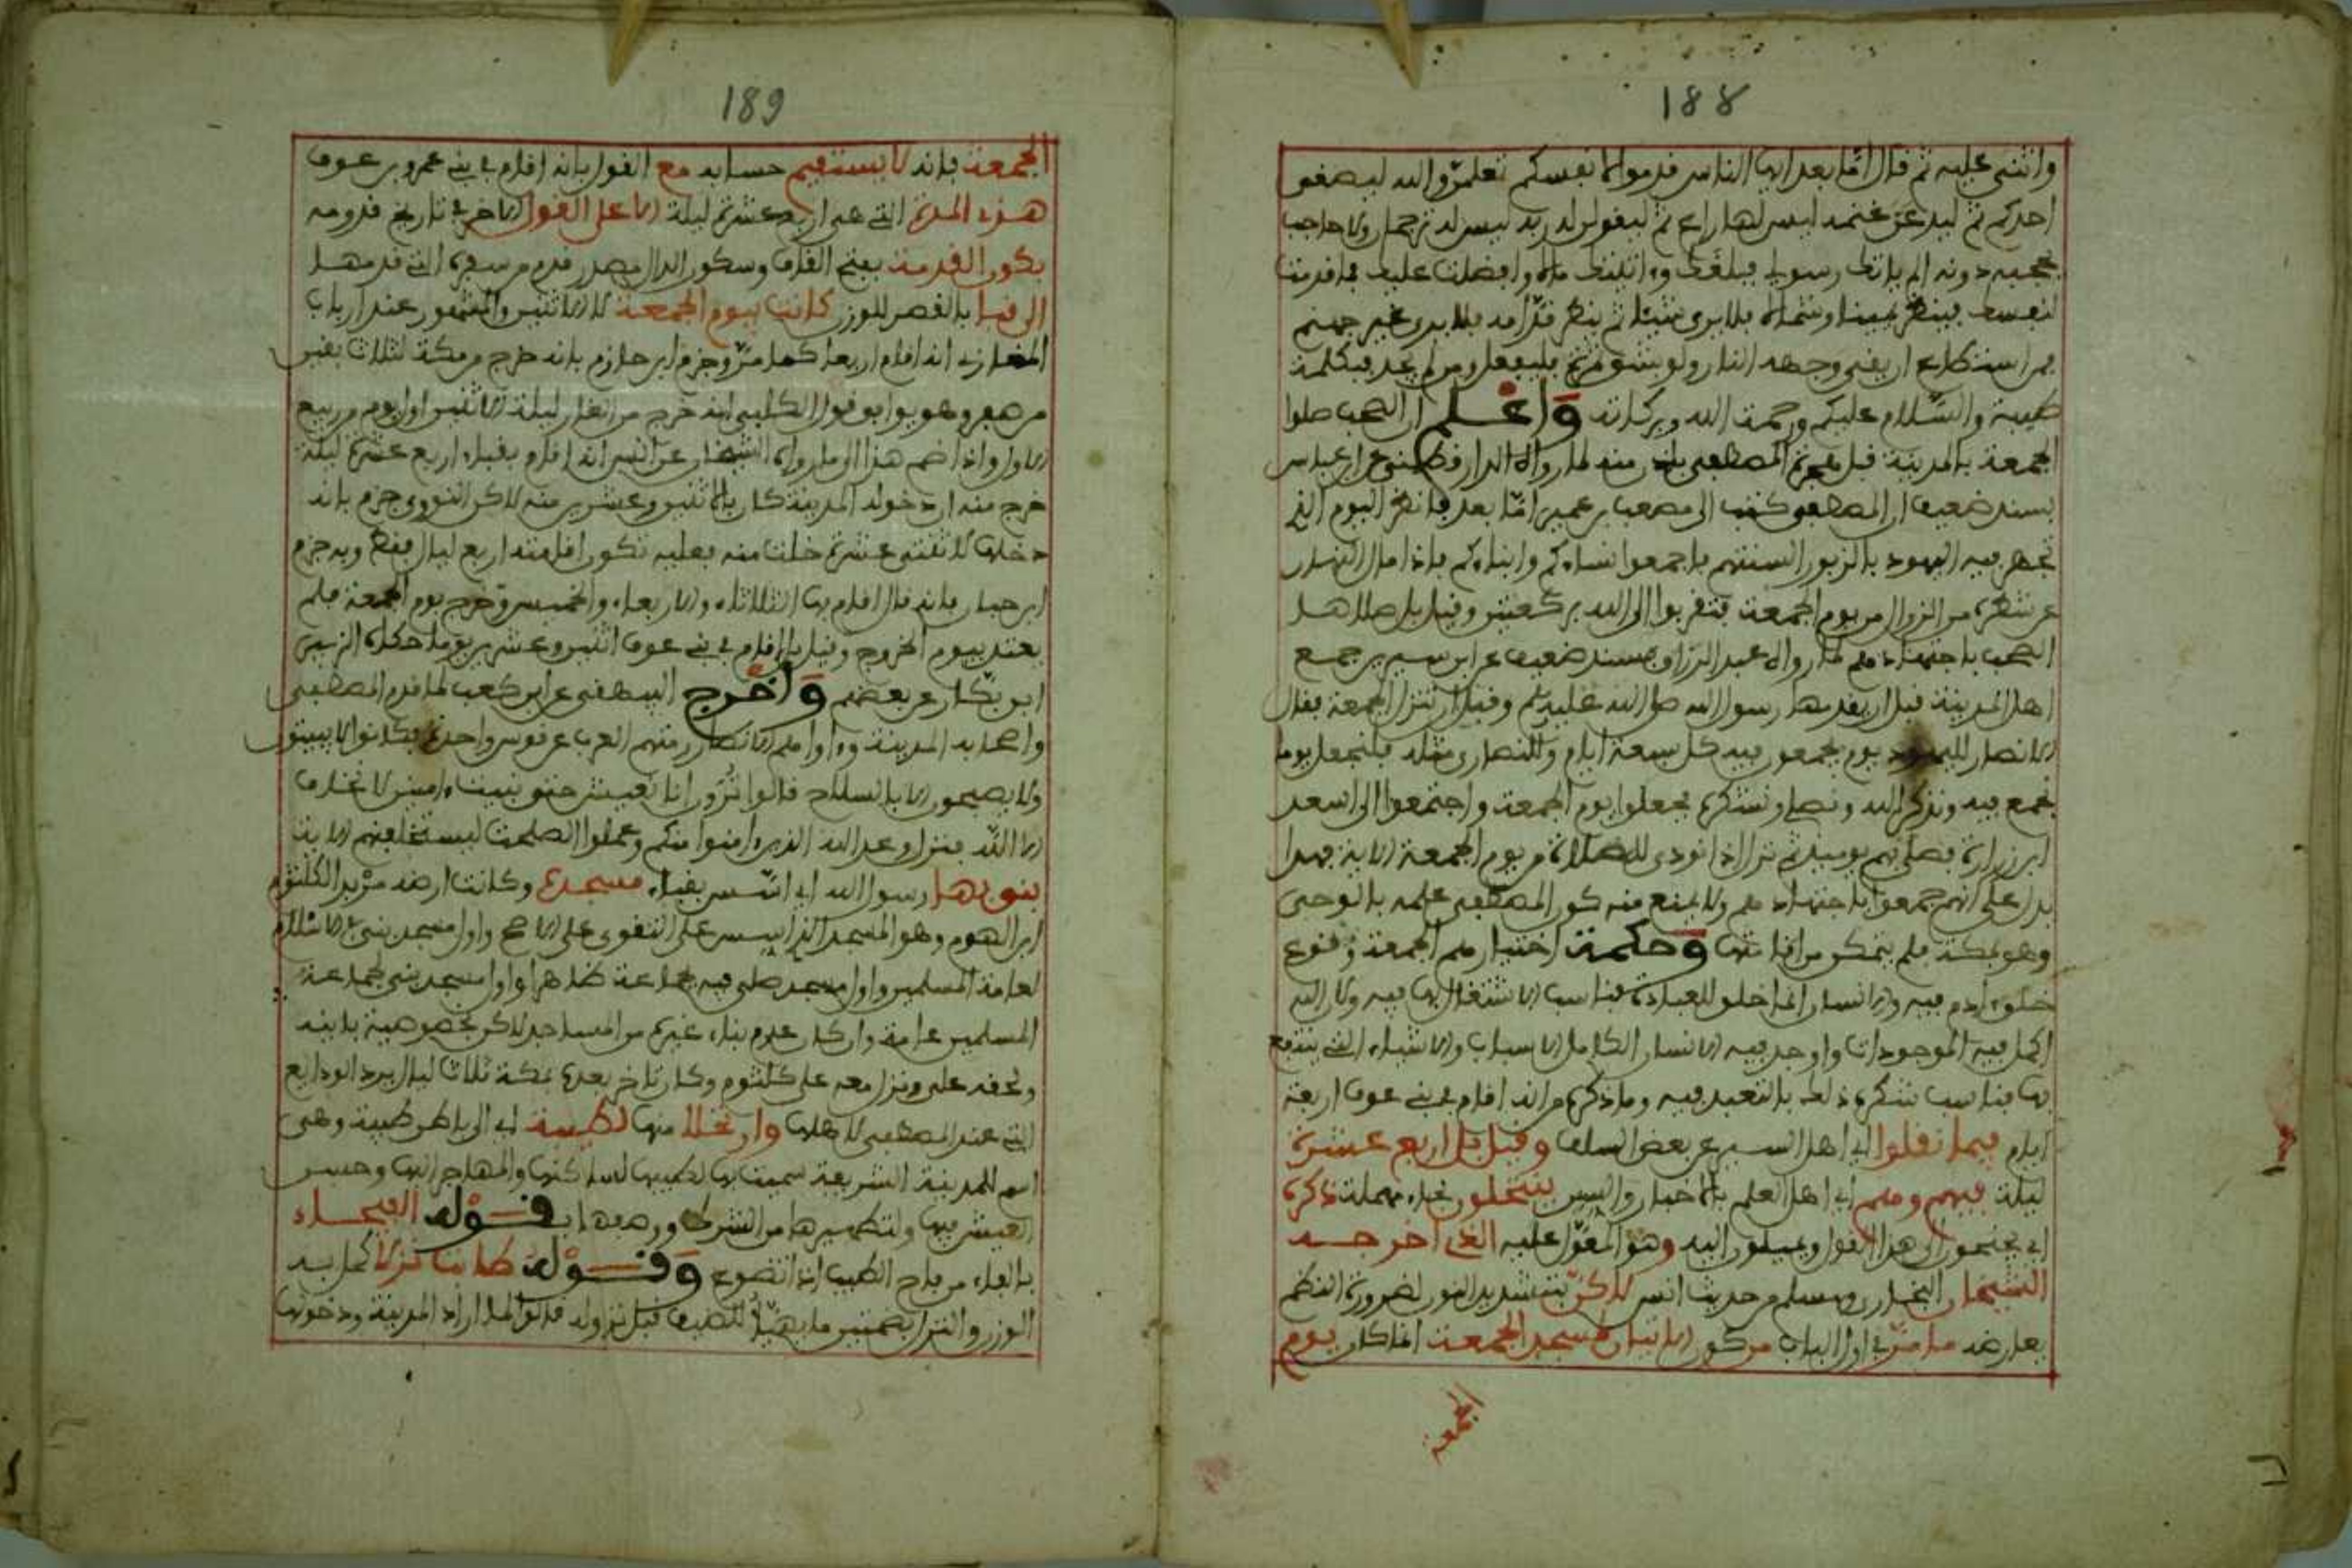 188
واثنى عليه ثم قال اما بعد ايها الناس فدموا لانفسكم تعلمن والله ليصعقن
احدكم ثم ليدعن غنمه ليس لها راع ثم ليقولن له ربه ليس له ترجمان ولا حاجب
يحجبه دونه الم ياتك رسولي فبلغك وءاتيتك مالا وافضلت عليك فما قدمت
لنفسك فينظر يمينا وشمالا فلا يرى شيئا ثم ينظر قدامه فلا يرى غير جهنم
فمن استطاع ان يقي وجهه النار ولو بشق تمرة فليفعل ومن لم يجد فبكلمة
طيبة والسلام عليكم ورحمة الله وبركاته واعلم ان الصحب صلوا
الجمعة بالمدينة قبل مقدم المصطفى باذن منه لما رواه الدارقطني عن ابن عباس
بسند ضعيف ان المصطفى كتب الى مصعب بن عمير اما بعد فانظر اليوم الذي
تجهر فيه اليهود بالزبور لسبتهم فاجمعوا نساءكم وابناءكم فاذا مال النهار
عن شطره من الزوال من يوم الجمعة فتقربوا الى الله بركعتين وقيل بل صلاها
الصحب باجتهادهم لما رواه عبد الرزاق بسند ضعيف عن ابن سيرين جمع
اهل المدينة قبل ان يقدمها رسول الله صلى الله عليه وسلم وقبل ان تنزل الجمعة فقال
الانصار لليهود يوم يجمعون فيه كل سبعة ايام وللنصارى مثله فلنجعل يوما
نجمع فيه ونذكر الله ونصلي ونشكره فجعلوا يوم الجمعة واجتمعوا الى اسعد
ابن زرارة فصلى بهم يوميذ ثم نزل اذا نودي للصلاة من يوم الجمعة الاية فهذا
يدل على انهم جمعوا باجتهادهم ولا يمنع منه كون المصطفى علمه بالوحي
وهو بمكة فلم يتمكن من اقامتها وحكمة اختيارهم الجمعة وقوع
خلق ءادم فيه والانسان انما خلق للعبادة فناسب الاشتغال بها فيه ولان الله
اكمل فيه الموجودات واوجد فيه الانسان الكامل الاسباب والاشياء التي ينتفع
بها فناسب شكره ذلك بالتعبد فيه وما ذكره من انه اقام في بني عوف اربعة
ايام فيما نقلوا اي اهل السير عن بعض السلف وقيل بل اربع عشرة
ليلة فيهم وهم اي اهل العلم بالاخبار والسير ينتحلون بحاء مهملة ذكره
اي يجنحون الى هذا القول ويميلون اليه وهو المعول عليه الذي اخرجه
الشيخان البخاري ومسلم من حديث انس لاكن بتشديد النون لضرورة النظم
يعارضه ما مر في اول الباب من كون الاتيان لمسجد الجمعة انما كان يوم
الجمعة
189
الجمعة فانه لا يستقيم حسابه مع القول بانه اقام في بني عمرو بن عوف
هذه المدة التي هي اربع عشرة ليلة الا على القول الاخر في تاريخ قدومه
بكون القدمة بفتح القاف وسكون الدال مصدر قدم من سفره التي قدمها
الى قبا بالقصر للوزن كانت بيوم الجمعة لا الاثنين والمشهور عند ارباب
المغازي انه اقام اربعا كما مر وجزم ابن حازم بانه خرج من مكة لثلاث بقين
من صفر وهو يوافق قول الكلبي انه خرج من الغار ليلة الاثنين اول يوم من ربيع
الاول واذا ضم هذا الى ما رواه الشيخان عن انس انه اقام بقباء اربع عشرة ليلة
خرج منه ان دخوله المدينة كان بالاثنين وعشرين منه لاكن النووي جزم بانه
دخلها لاثنتي عشرة خلت منه فعليه تكون اقامته اربع ليال فقط وبه جزم
ابن حبان فانه قال اقام بها الثلاثاء والاربعاء والخميس وخرج يوم الجمعة فلم
يعتد بيوم الخروج وقيل بل اقام في بني عوف اثنين وعشرين يوما حكاه الزبير
ابن بكار عن بعضهم واخرج البيهقي عن ابن كعب لما قدم المصطفى
واصحابه المدينة وءاواهم الانصار رمتهم العرب عن قوس واحدة فكانوا لا يبيتون
ولا يصبحون الا بالسلاح فقالوا ترون انا نعيش حتى نبيت ءامنين لا نخاف
الا الله فنزل وعد الله الذين ءامنوا منكم وعملوا الصلحت ليستخلفنهم الاية
بنى بها رسول الله اي اسس بقباء مسجده وكانت ارضه مربد الكلثوم
ابن الهدم وهو المسجد الذي اسس على التقوى على الاصح واول مسجد بني في الاسلام
لعامة المسلمين واول مسجد صلى فيه بجماعة ظاهرا واول مسجد بني لجماعة
المسلمين عامة وان كان عدم بناء غيره من المساجد لاكن بخصوصية بانيه
ولحقه علي ونزل معه على كلثوم وكان تاخر بعده بمكة ثلاث ليال يرد الودايع
التي عند المصطفى لاهلها وارتحلا منها لطيبة اي الى باطن طيبة وهي
اسم للمدينة الشريفة سميت بها لطيبها لساكنها والمهاجر اليها وحسن
العيش فيها ولتطهيرها من الشرك ووصفها بقوله الفيحاء
بالفاء من فاح الطيب اذا تضوع وقوله طابت نزلا كمل به
الوزن والنزل بضمتين ما يهيأ للضيف قبل نزوله قالوا لما اراد المدينة ودخولها